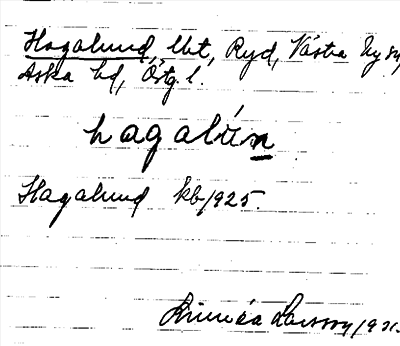 Hagalund, lht, Ryd, Västra Ny sn,
Aska hd, Östg l.
hagalún
Hagalund kb 1925.
Linnéa Larsson 1931.